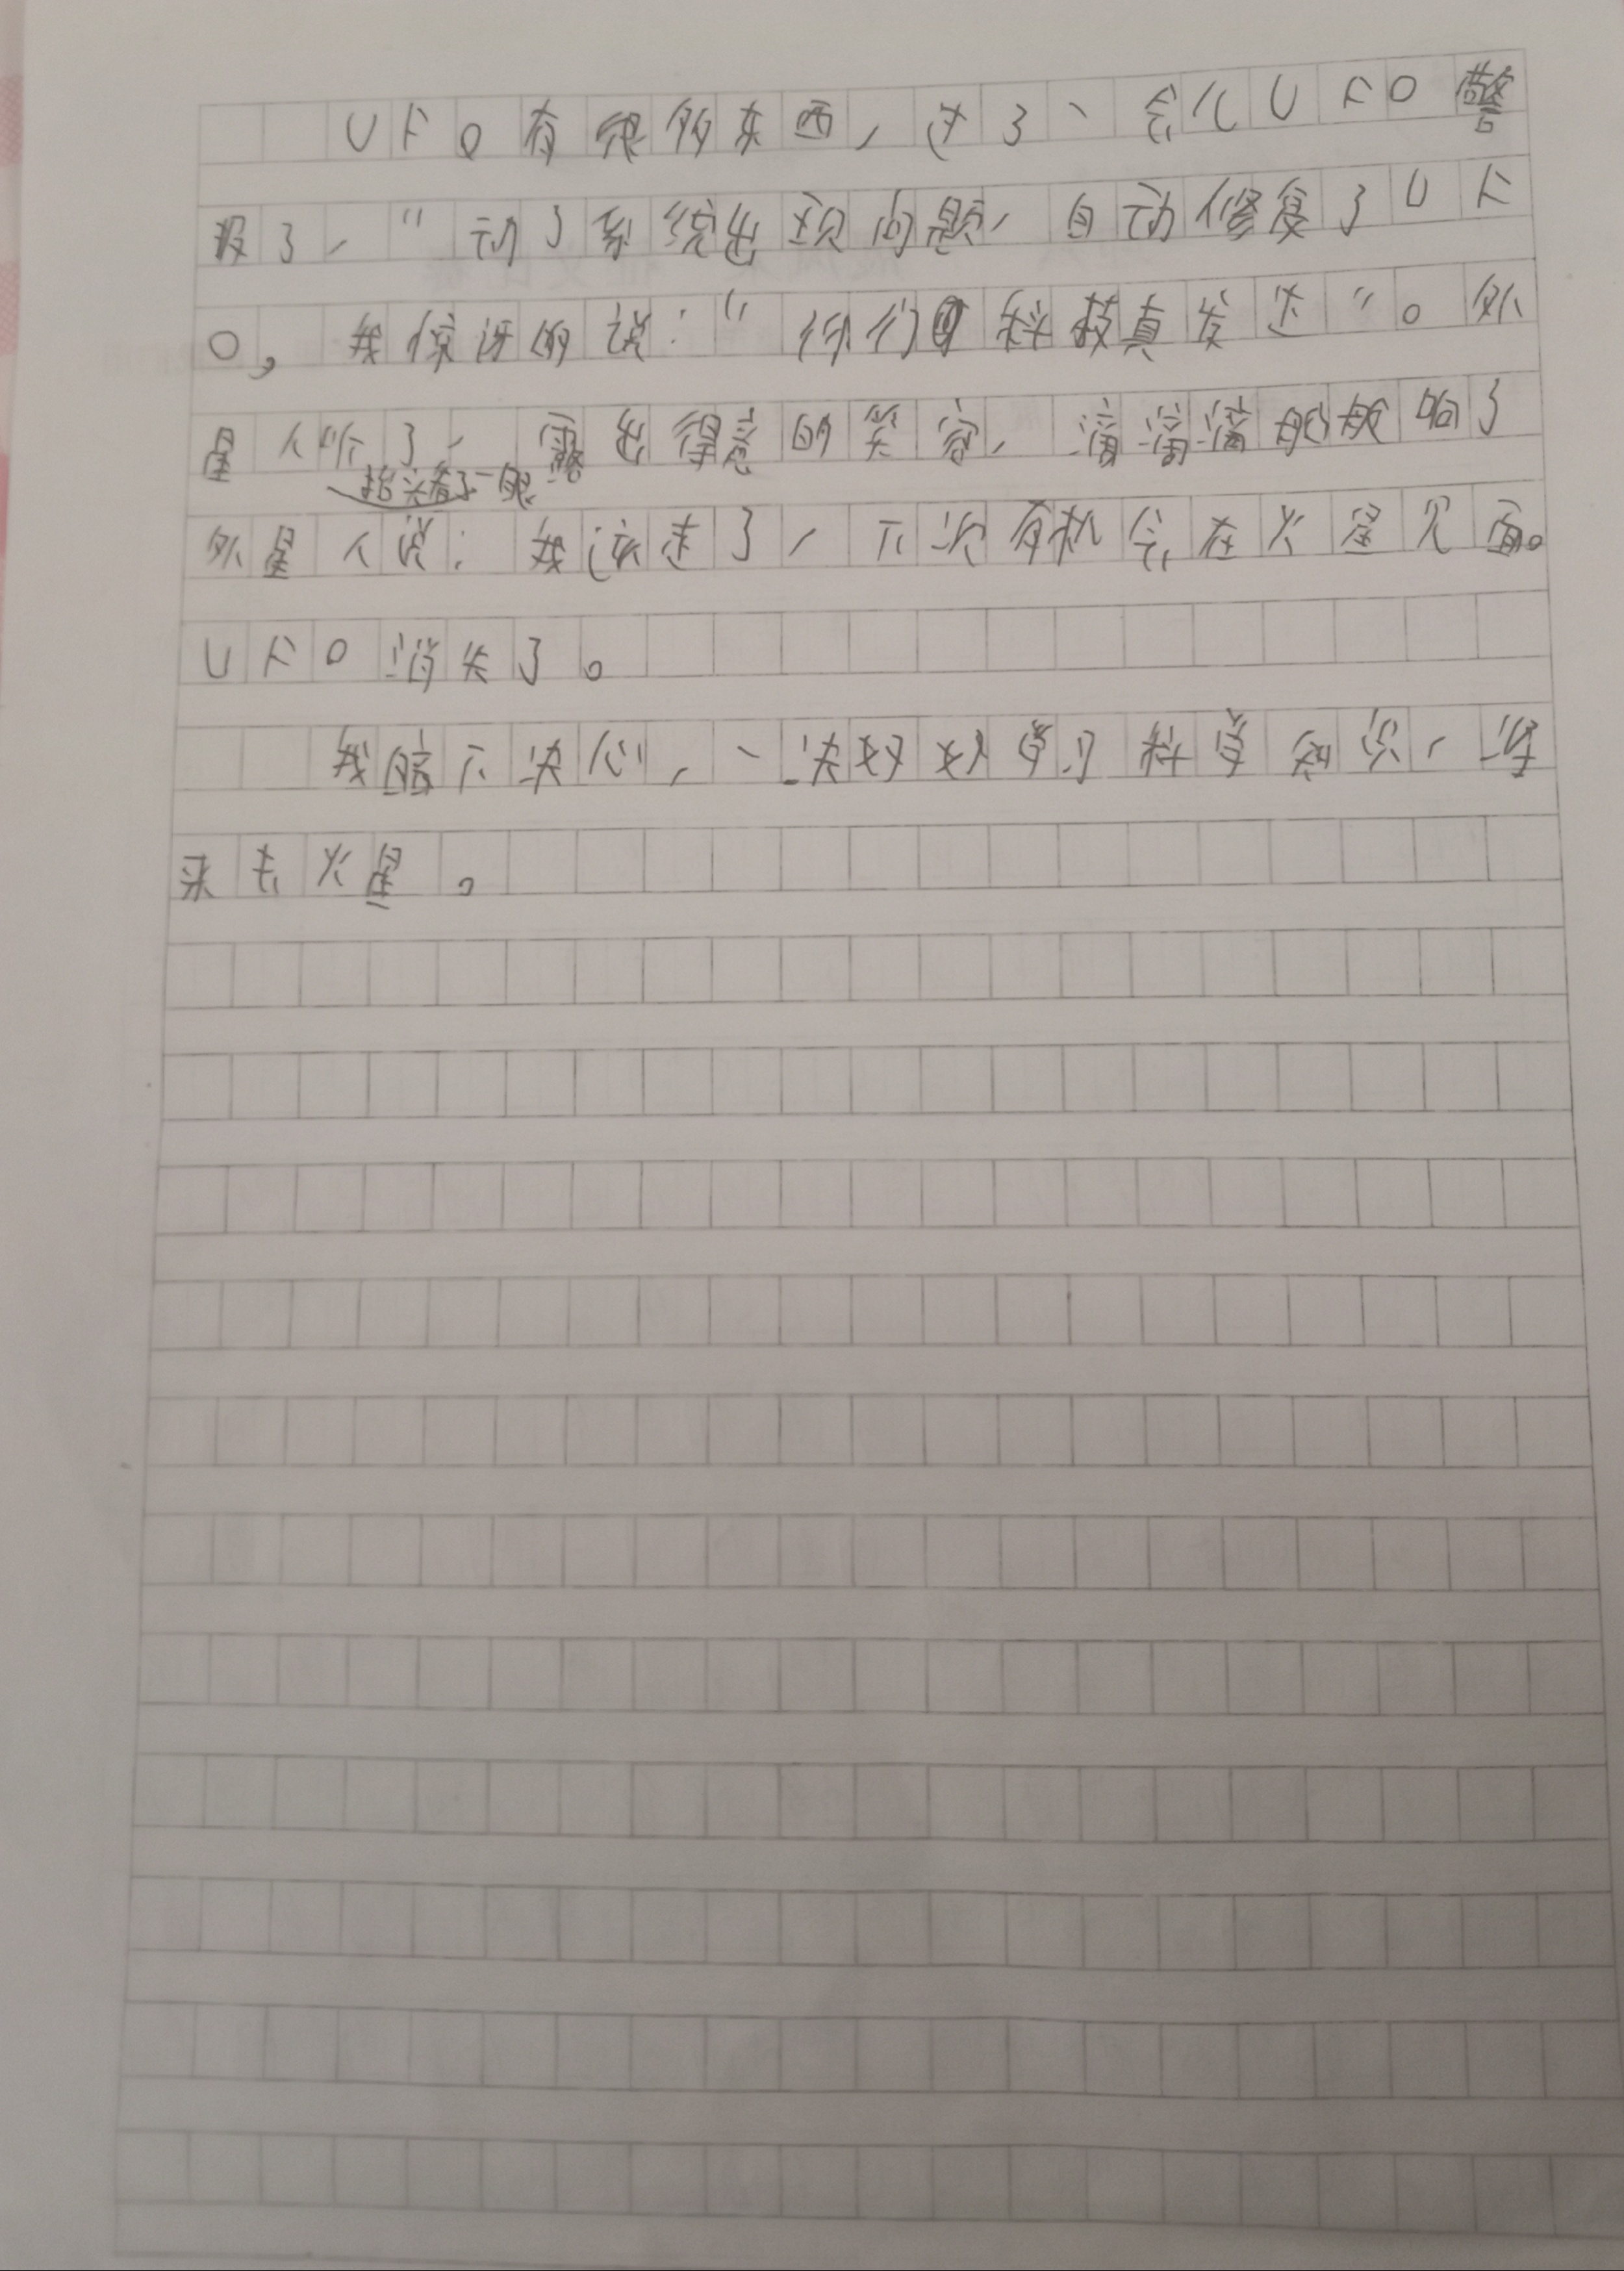 UFO有很多东西，过了一会儿UFO警
报了，“动了系统出现问题，自动修复了UF
O，我惊讶的说：“你们科技真发达”。外
星人听了，露出得意的笑容，滴滴滴舰艇响了
抬头看了一眼
外星人说：我该走了，下次有机会在火星见面。
UFO消失了。
我暗下决心，一决好好学习科学知识，将
来去火星。